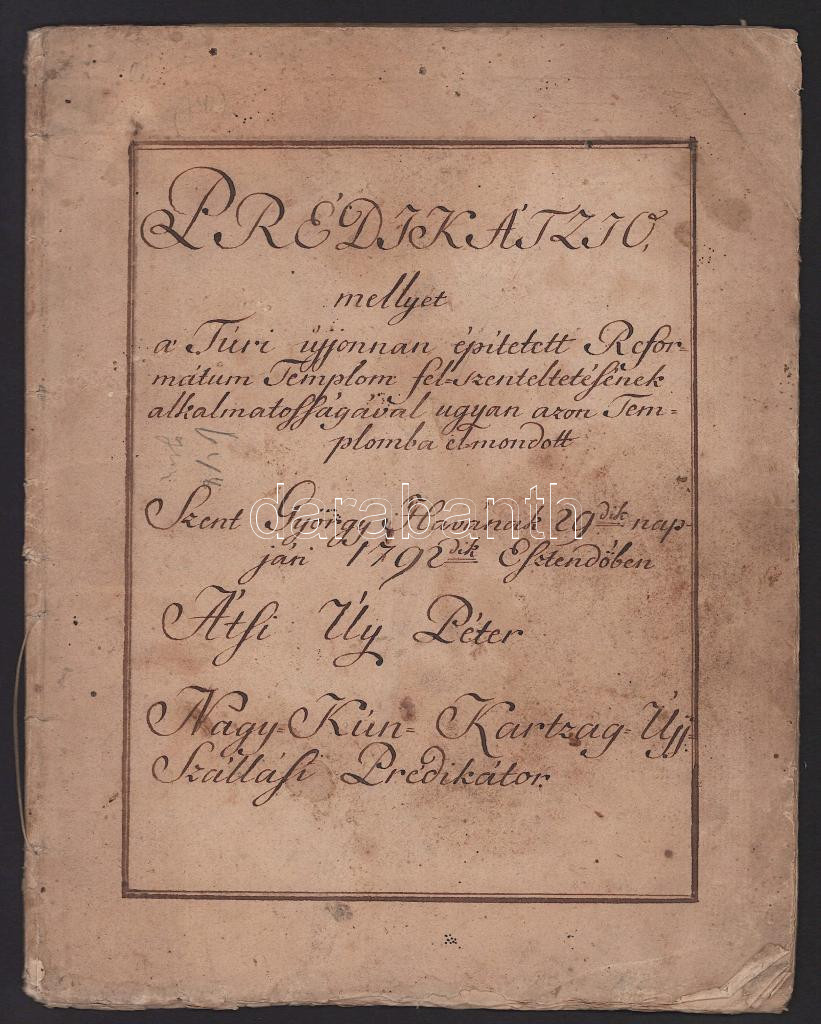 PRÉDIKÁTZIO,
mellyet
a' Túri újjonnan építetett Refor=
mátum Templom fel-szenteltetésének
alkalmatosságával ugyan azon Tem=
plomba elmondott
darabanth
Szent György Havának 29dik nap-
ján 1792dik Esztendőben
Átsi Úy Péter
Nagy=Kún= Kartzag=Újj=
Szállási Prédikátor.